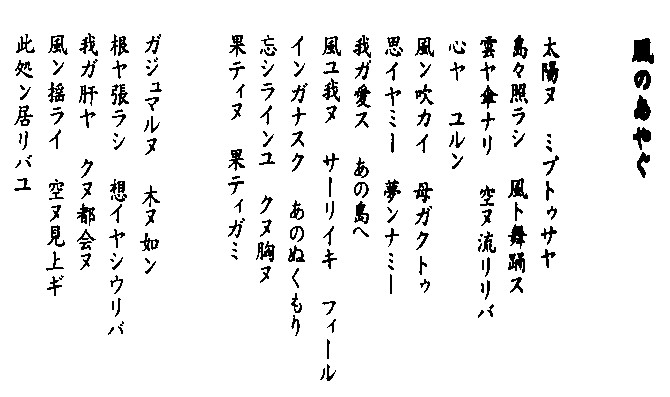 風のあやぐ
太陽ヌ ミプトゥサヤ
島々照ラシ 風ト舞踊ス
雲ヤ傘ナリ 空ヌ流リリバ
心ヤ ユルン
風ン吹カイ 母ガクトゥ
思イヤミー 夢ンナミー
我ガ愛ス あの島へ
風ユ我ヌ サーリイキ フィール
インガナスク あのぬくもり
忘シラインユ クヌ胸ヌ
果ティヌ 果ティガミ
ガジュマルヌ 木ヌ如ン
根ヤ張ラシ 想イヤシウリバ
我ガ肝ヤ クヌ都会ヌ
風ン揺ライ 空ヌ見上ギ
此処ン居リバユ